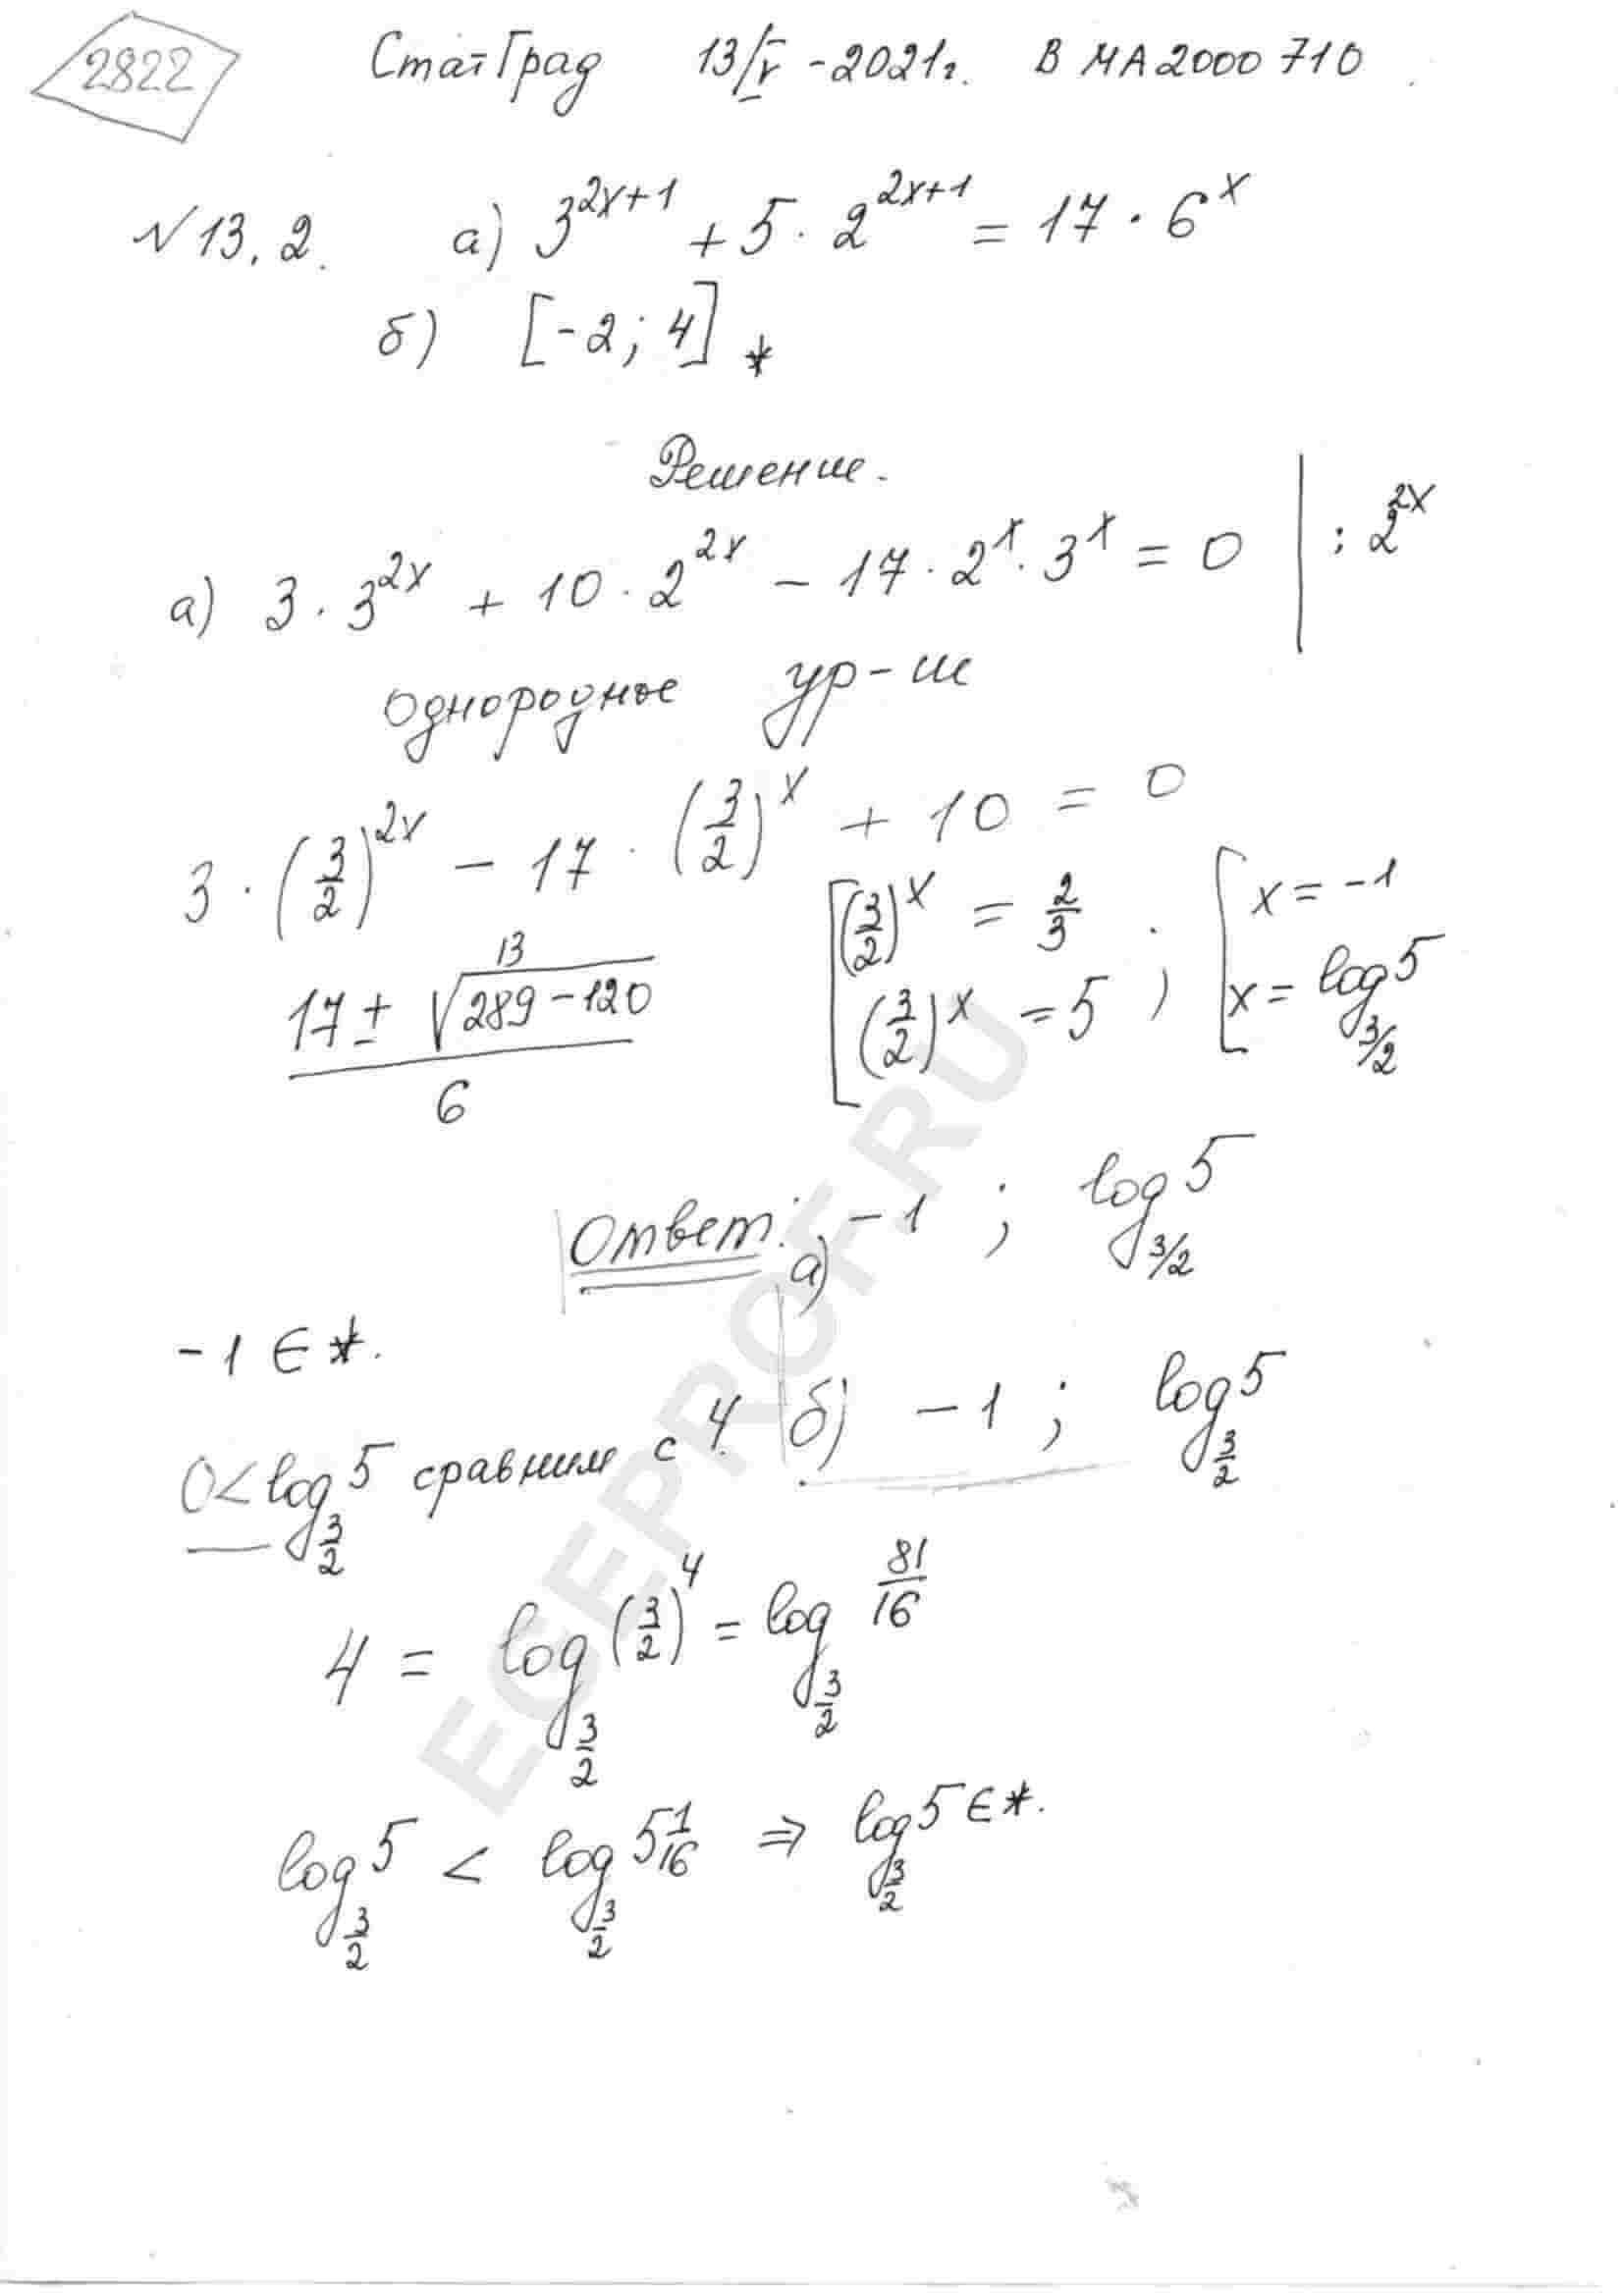 2822
СтатГрад 13/V -2021г. В МА2000710.
№13.2. а) 3^{2x+1} + 5 · 2^{2x+1} = 17 · 6^x
б) [-2; 4] *
Решение.
а) 3 · 3^{2x} + 10 · 2^{2x} - 17 · 2^x · 3^x = 0 | : 2^{2x}
однородное ур-ие
3 · (3/2)^{2x} - 17 · (3/2)^x + 10 = 0
(17 ± √(289-120))/6 13
[(3/2)^x = 2/3 ; [x = -1
(3/2)^x = 5 x = log_{3/2} 5
Ответ: а) -1 ; log_{3/2} 5
-1 ∈ *.
б) -1 ; log_{3/2} 5
0 < log_{3/2} 5 сравним с 4.
4 = log_{3/2} (3/2)^4 = log_{3/2} 81/16
log_{3/2} 5 < log_{3/2} 5 1/16 ⇒ log_{3/2} 5 ∈ *.
EGEPROF.RU